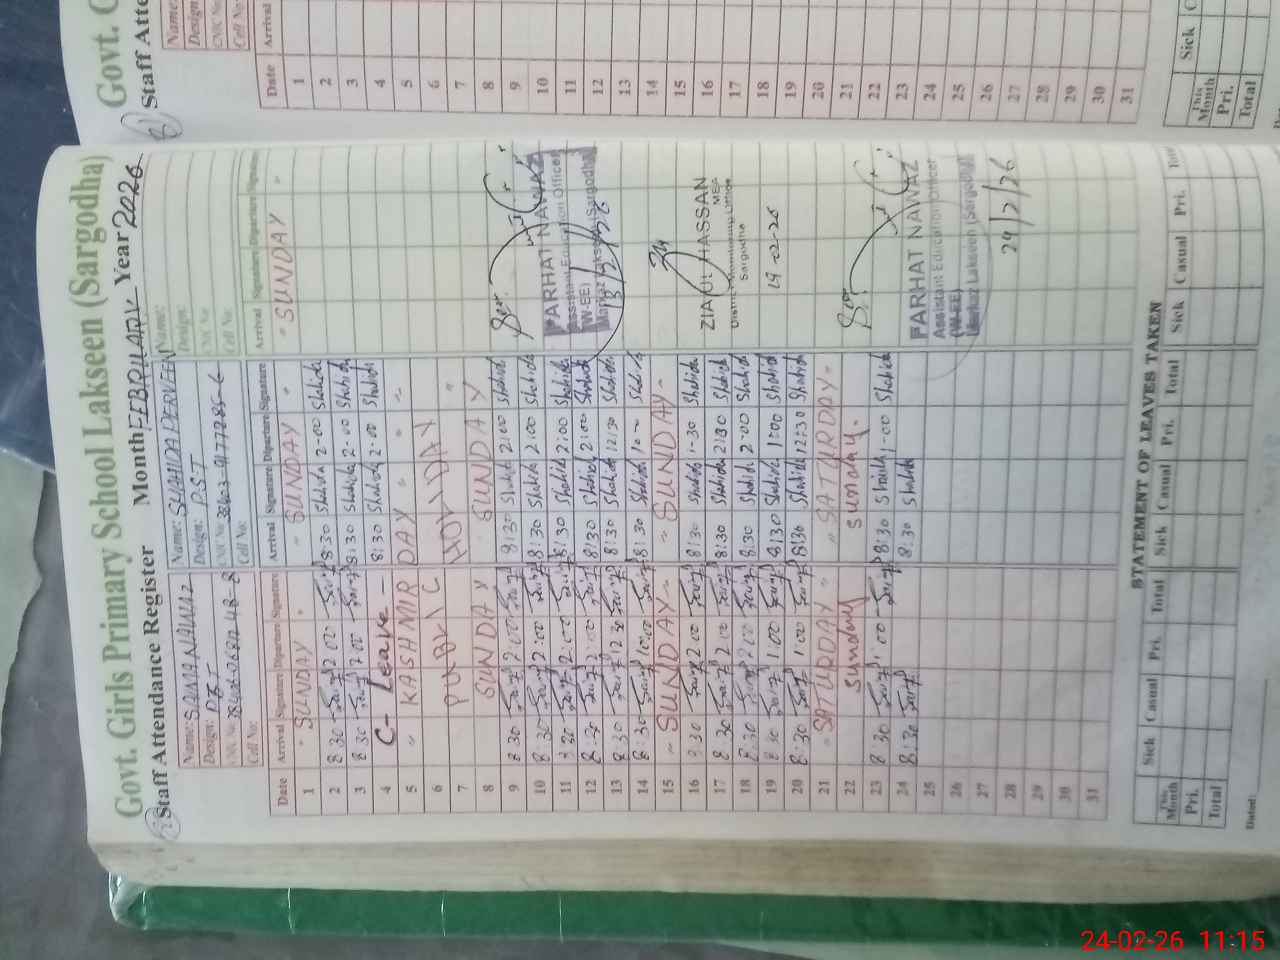 Govt. Girls Primary School Lakseen (Sargodha)
Staff Attendance Register Month FEBRUARY Year 2026
Name: SAIMA NAWAZ Name: SHAHIDA PERVEEN Name:
Design: PST Design: P.S.T Design:
CNIC No CNIC No CNIC No
Cell No: Cell No: Cell No:
Date Arrival Signature Diparture Signature Arrival Signature Diparture Signature Arrival Signature Diparture Signature
1 SUNDAY SUNDAY SUNDAY
2 8:30 2:00 8:30 Shahida 2-00 Shahida
3 8:30 2:00 8:30 Shahida 2-00 Shahida
4 C- Leave 8:30 Shahida 2-00 Shahida
5 KASHMIR DAY
6 PUBLIC HOLIDAY
7
8 SUNDAY SUNDAY
9 8:30 2:00 8:30 Shahida 2:00 Shahida
10 8:30 2:00 8:30 Shahida 2:00 Shahida
11 8:30 2:00 8:30 Shahida 2:00 Shahida
12 8:30 2:00 8:30 Shahida 2:00 Shahida
13 8:30 12:30 8:30 Shahida 12:30 Shahida
14 8:30 10:00 8:30 Shahida Shahida
15 SUNDAY SUNDAY
16 8:30 2:00 8:30 Shahida 1-30 Shahida
17 8:30 2:00 8:30 Shahida Shahida
18 8:30 2:00 8:30 Shahida 2-00 Shahida
19 8:30 1:00 8:30 Shahida 1:00 Shahida
20 8:30 1:00 8:30 Shahida 12:30 Shahida
21 SATURDAY SATURDAY
22 Sunday Sunday
23 8:30 1:00 8:30 Shahida 1-00 Shahida
24 8:30 8:30 Shahida
25
26
27
28
29
30
31
FARHAT NAWAZ
Assistant Education Officer
(W-EE)
Markaz Lakseen (Sargodha)
ZIA UL HASSAN
MEA
District Monitoring Officer
Sargodha
19-02-26
FARHAT NAWAZ
Assistant Education Officer
(W-EE)
Markaz Lakseen (Sargodha)
24/2/26
STATEMENT OF LEAVES TAKEN
This Month Sick Casual Pri. Total Sick Casual Pri. Total Sick Casual Pri. Total
Pri.
Total
Dated:
Govt. G
Staff Atte
Name:
Design
CNIC No
Cell No:
Date Arrival
1
2
3
4
5
6
7
8
9
10
11
12
13
14
15
16
17
18
19
20
21
22
23
24
25
26
27
28
29
30
31
This Month Sick C
Pri.
Total
24-02-26 11:15